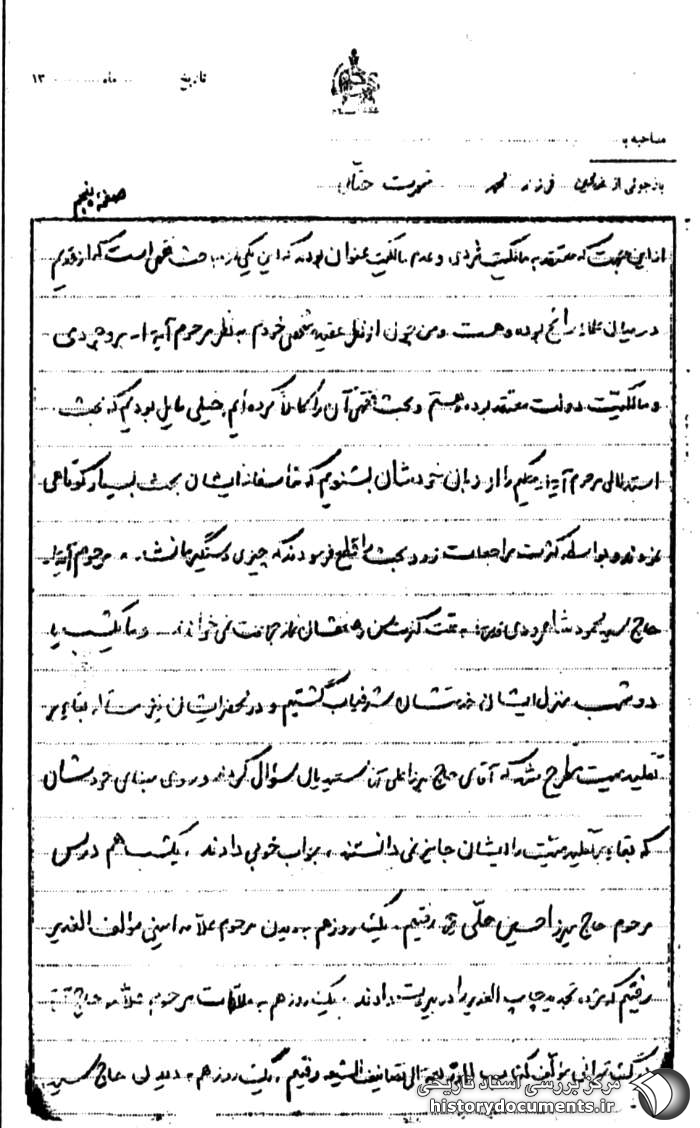 تاریخ ماه ۱۳
مصاحبه با
بازجوئی از غیر فرزند شهرت حقانی
صفحه پنجم
از این جهت که معتقد به مالکیت فردی و عدم مالکیت عنوان بودند که این یکی از مباحث فقهی است که از قدیم
در میان علماء رائج بوده و هست و من چون از نظر عقیده شخصی خودم به نظر مرحوم آیة ا... بروجردی
و مالکیت دولت معتقد بوده و هستم و بحث فقهی آن را کاملاً کرده‌ایم خیلی مایل بودیم که بحث
استدلالی مرحوم آیة ا... حکیم را از زبان خودشان بشنویم که متأسفانه ایشان بحث بسیار کوتاهی
نمودند و بواسطه کثرت مراجعات زود بحث را قطع فرمودند که چیزی دستگیرمانشد. مرحوم آیة ا...
حاج سید محمود شاهرودی به علت کبر سن و ضعفشان نماز جماعت نمی‌خواندند و ما یکشب یا
دو شب منزل ایشان خدمتشان شرفیاب گشتیم و در محضر ایشان نیز مسئله بقاء بر
تقلید میت مطرح شد که آقای حاج میرزا علی آن سؤال کردند و روی مبنای خودشان
که بقاء بر تقلید میت را ایشان جایز نمی‌دانستند، جواب خوبی دادند. یکشب هم درس
مرحوم حاج میرزا حسین حلّی رفتیم. یک روز هم به دیدن مرحوم علامه امینی مؤلف الغدیر
رفتیم که مژده تجدید چاپ الغدیر را در بیروت دادند. یک روز هم به ملاقات مرحوم علامه حاج آقا
بزرگ تهرانی مؤلف کتاب الذریعه الی تصانیف الشیعه رفتیم. یک روز هم به دیدن حاج سید
مرکز بررسی اسناد تاریخی
historydocuments.ir